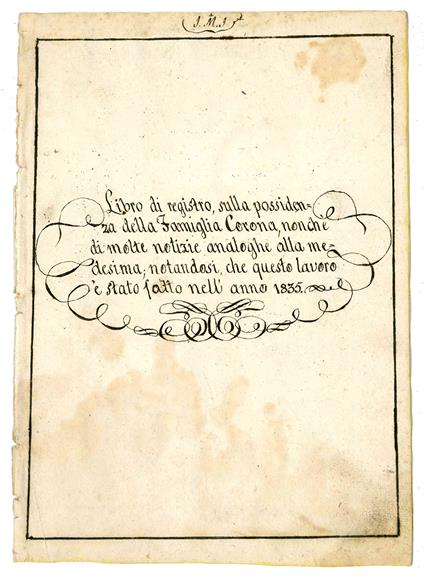 J. M. J.
Libro di registro, sulla possiden=
za della Famiglia Corona, nonchè
di molte notizie analoghe alla me=
desima; notandosi, che questo lavoro
è stato fatto nell' anno 1835.